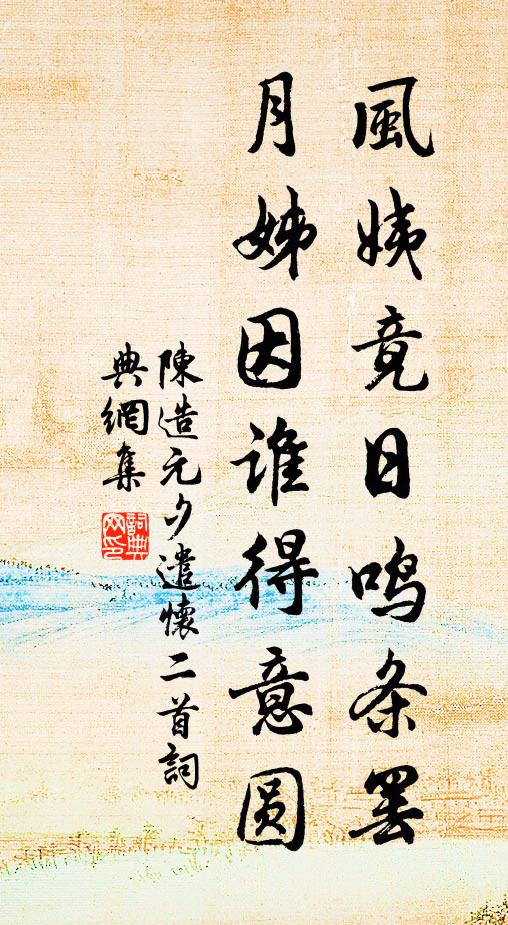 風姨竟日鸣条罢
月姊因谁得意圆
陳造元夕遣懷二首詞
典網集
詞典网印